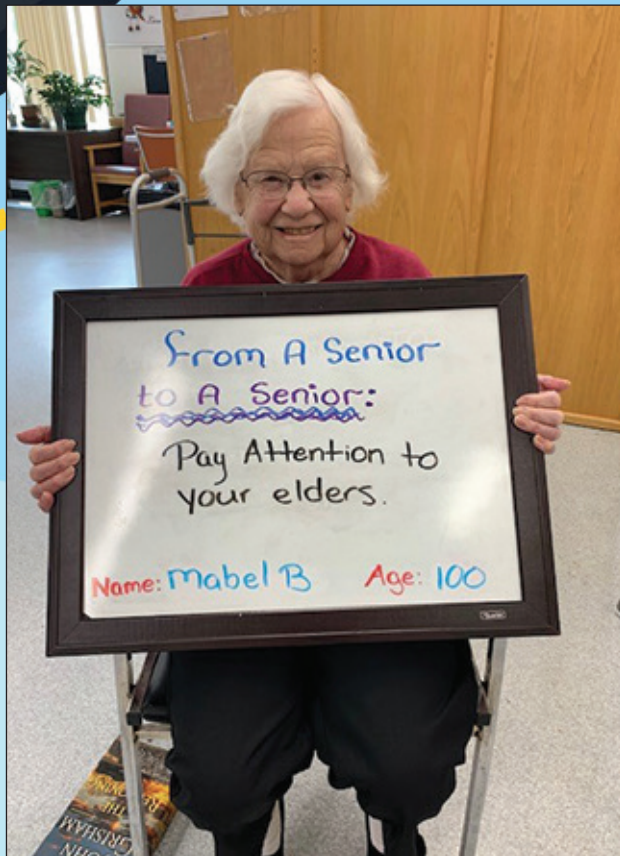 From A Senior
to A Senior:
Pay Attention to
your elders.
Name: Mabel B Age: 100
THE
JOHN
GRISHAM